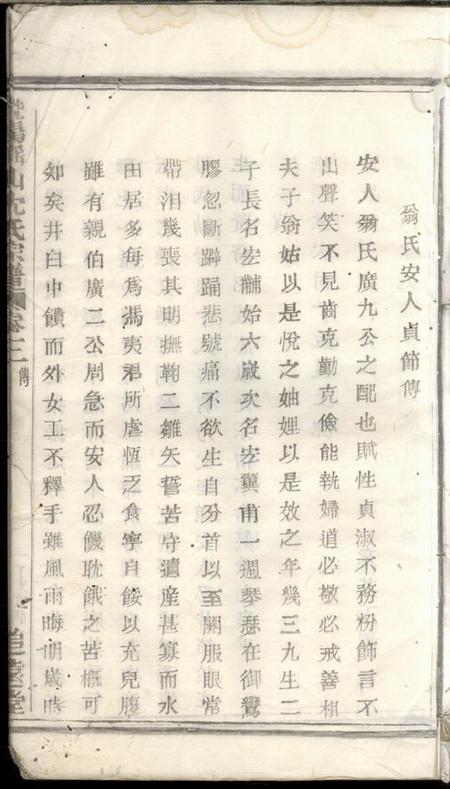 翁氏安人貞節傳
安人翁氏廣九公之配也賦性貞淑不務粉飾言不
出聲笑不見齒克勤克儉能執婦道必敬必戒善相
夫子翁姑以是悅之妯娌以是效之年幾三九生二
子長名宏黼始六歲次名宏冀甫一週琴瑟在御鸞
膠忽斷擗踊悲號痛不欲生自殁首以至闋服眼常
帶泪幾喪其明撫鞠二雛矢誓苦守遺產甚寡而水
田居多每為馮夷君所虐恆乏食寧自餒以充兒腹
雖有親伯廣二公周急而安人忍饑耽餓之苦概可
知矣井臼中饋而外女工不釋手雖風雨晦明歲時
山沈氏宗譜 卷三 傳